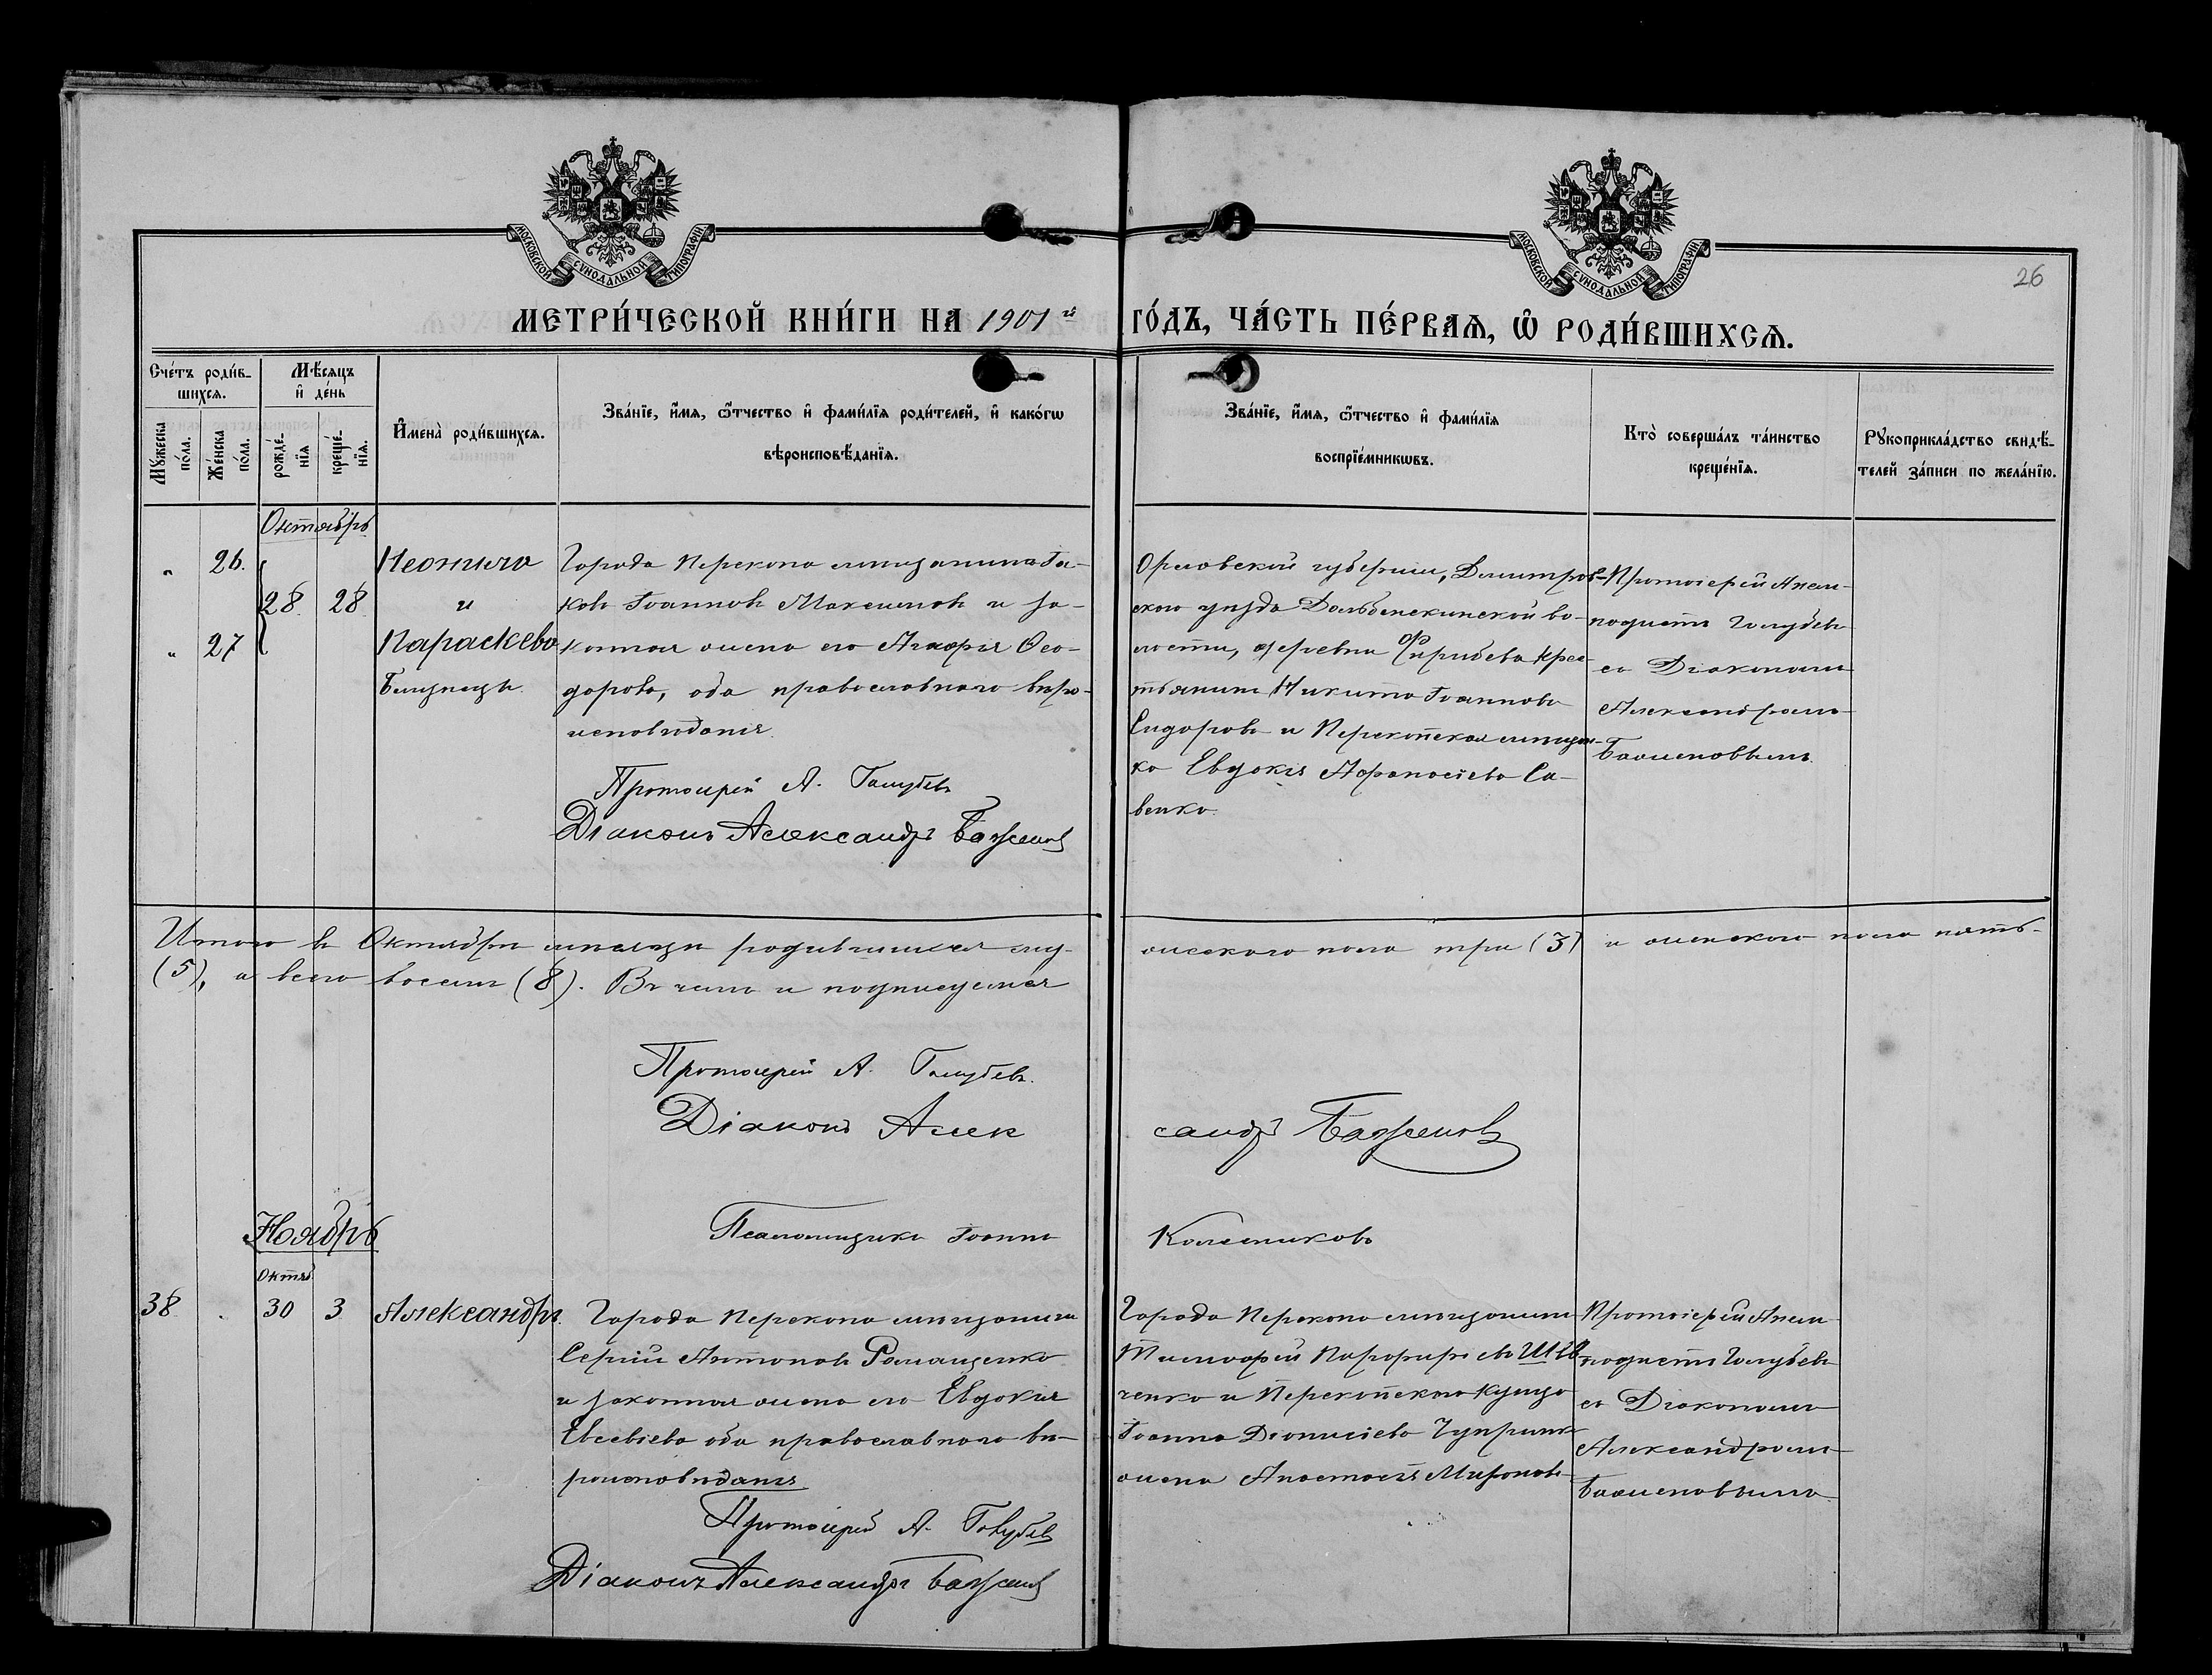 МОСКОВСКОЙ СѴНОДАЛЬНОЙ ТИПОГРАФІИ
МОСКОВСКОЙ СѴНОДАЛЬНОЙ ТИПОГРАФІИ
26
МЕТРИ́ЧЕСКОЙ КНИ́ГИ НА 1901й ГО́ДЪ, ЧА́СТЬ ПЕ́РВАѦ, Ѡ҆ РОДИ́ВШИХСѦ.
Сче́тъ роди́в-
шихсѧ.
Мꙋ́жеска
по́ла.
Же́нска
по́ла.
Мѣ́сѧцъ
и҆ де́нь
рожде́-
нїѧ
креще́-
нїѧ.
И҆мена̀ роди́вшихсѧ.
Зва́нїе, и҆́мѧ, ѻ҆́тчество и҆ фами́лїѧ роди́телей, и҆ како́гѡ
вѣроисповѣ́данїѧ.
Зва́нїе, и҆́мѧ, ѻ҆́тчество и҆ фами́лїѧ
воспрїе́мникѡвъ.
Кто̀ соверша́лъ та́инство
креще́нїѧ.
Рꙋкоприкла́дство свидѣ́-
телей за́писи по жела́нїю.
Октябрь
" 26.
" 27
28. 28
Неонила
и
Параскева
Близнецы.
Города Перекопа мѣщанинъ Іа-
ковъ Іоанновъ Максимовъ и за-
конная жена его Агафія Ѳео-
дорова, оба православнаго вѣро-
исповѣданія.
Протоіерей А. Голубевъ
Діаконъ Александръ Баженовъ
Орловской губерніи, Дмитров-
скаго уѣзда во-
лости, деревни крес-
тьянинъ Никита Іоанновъ
Сидоровъ и Перекопская мѣщан-
ка Евдокія Афанасіева Са-
венко.
Протоіерей Анем-
подистъ Голубевъ
съ Діакономъ
Александромъ
Баженовымъ.
Итого въ Октябрѣ мѣсяцѣ родившихся му- жескаго пола три (3) и женскаго пола пять-
(5), а всего восемь (8). Въ чемъ и подписуемся
Протоіерей А. Голубевъ.
Діаконъ Александръ Баженовъ
Псаломщикъ Іоаннъ Колесниковъ
Ноябрь
Октяб
38 . 30 3
Александръ.
Города Перекопа мѣщанинъ
Сергій Антоновъ Романенко
и законная жена его Евдокія
Евсевіева оба православнаго вѣ-
роисповѣданія
Протоіерей А. Голубевъ
Діаконъ Александръ Баженовъ
Города Перекопа мѣщанинъ
Тимофей Порфирьевъ Шев-
ченко и Перекопскаго купца
Іоанна Діонисіева
жена Анастасія Миронова
Протоіерей Анем-
подистъ Голубевъ
съ Діакономъ
Александромъ
Баженовымъ